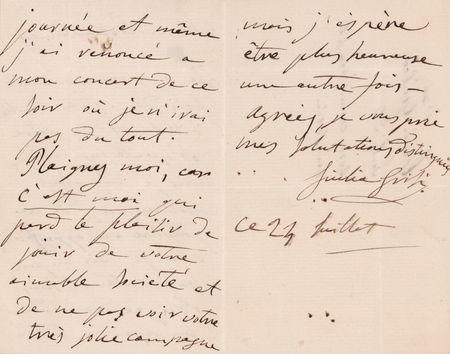 journée et même
j'ai renoncé a
mon concert de ce
soir où je n'irai
pas du tout.
Plaignez moi, car
c'est moi qui
perd le plaisir de
jouir de votre
aimable société et
de ne pas voir votre
très jolie campagne
mais j'espère
être plus heureuse
une autre fois—
agréez, je vous prie
mes salutations distinguées
Giulia Grisi
ce 24 Juillet